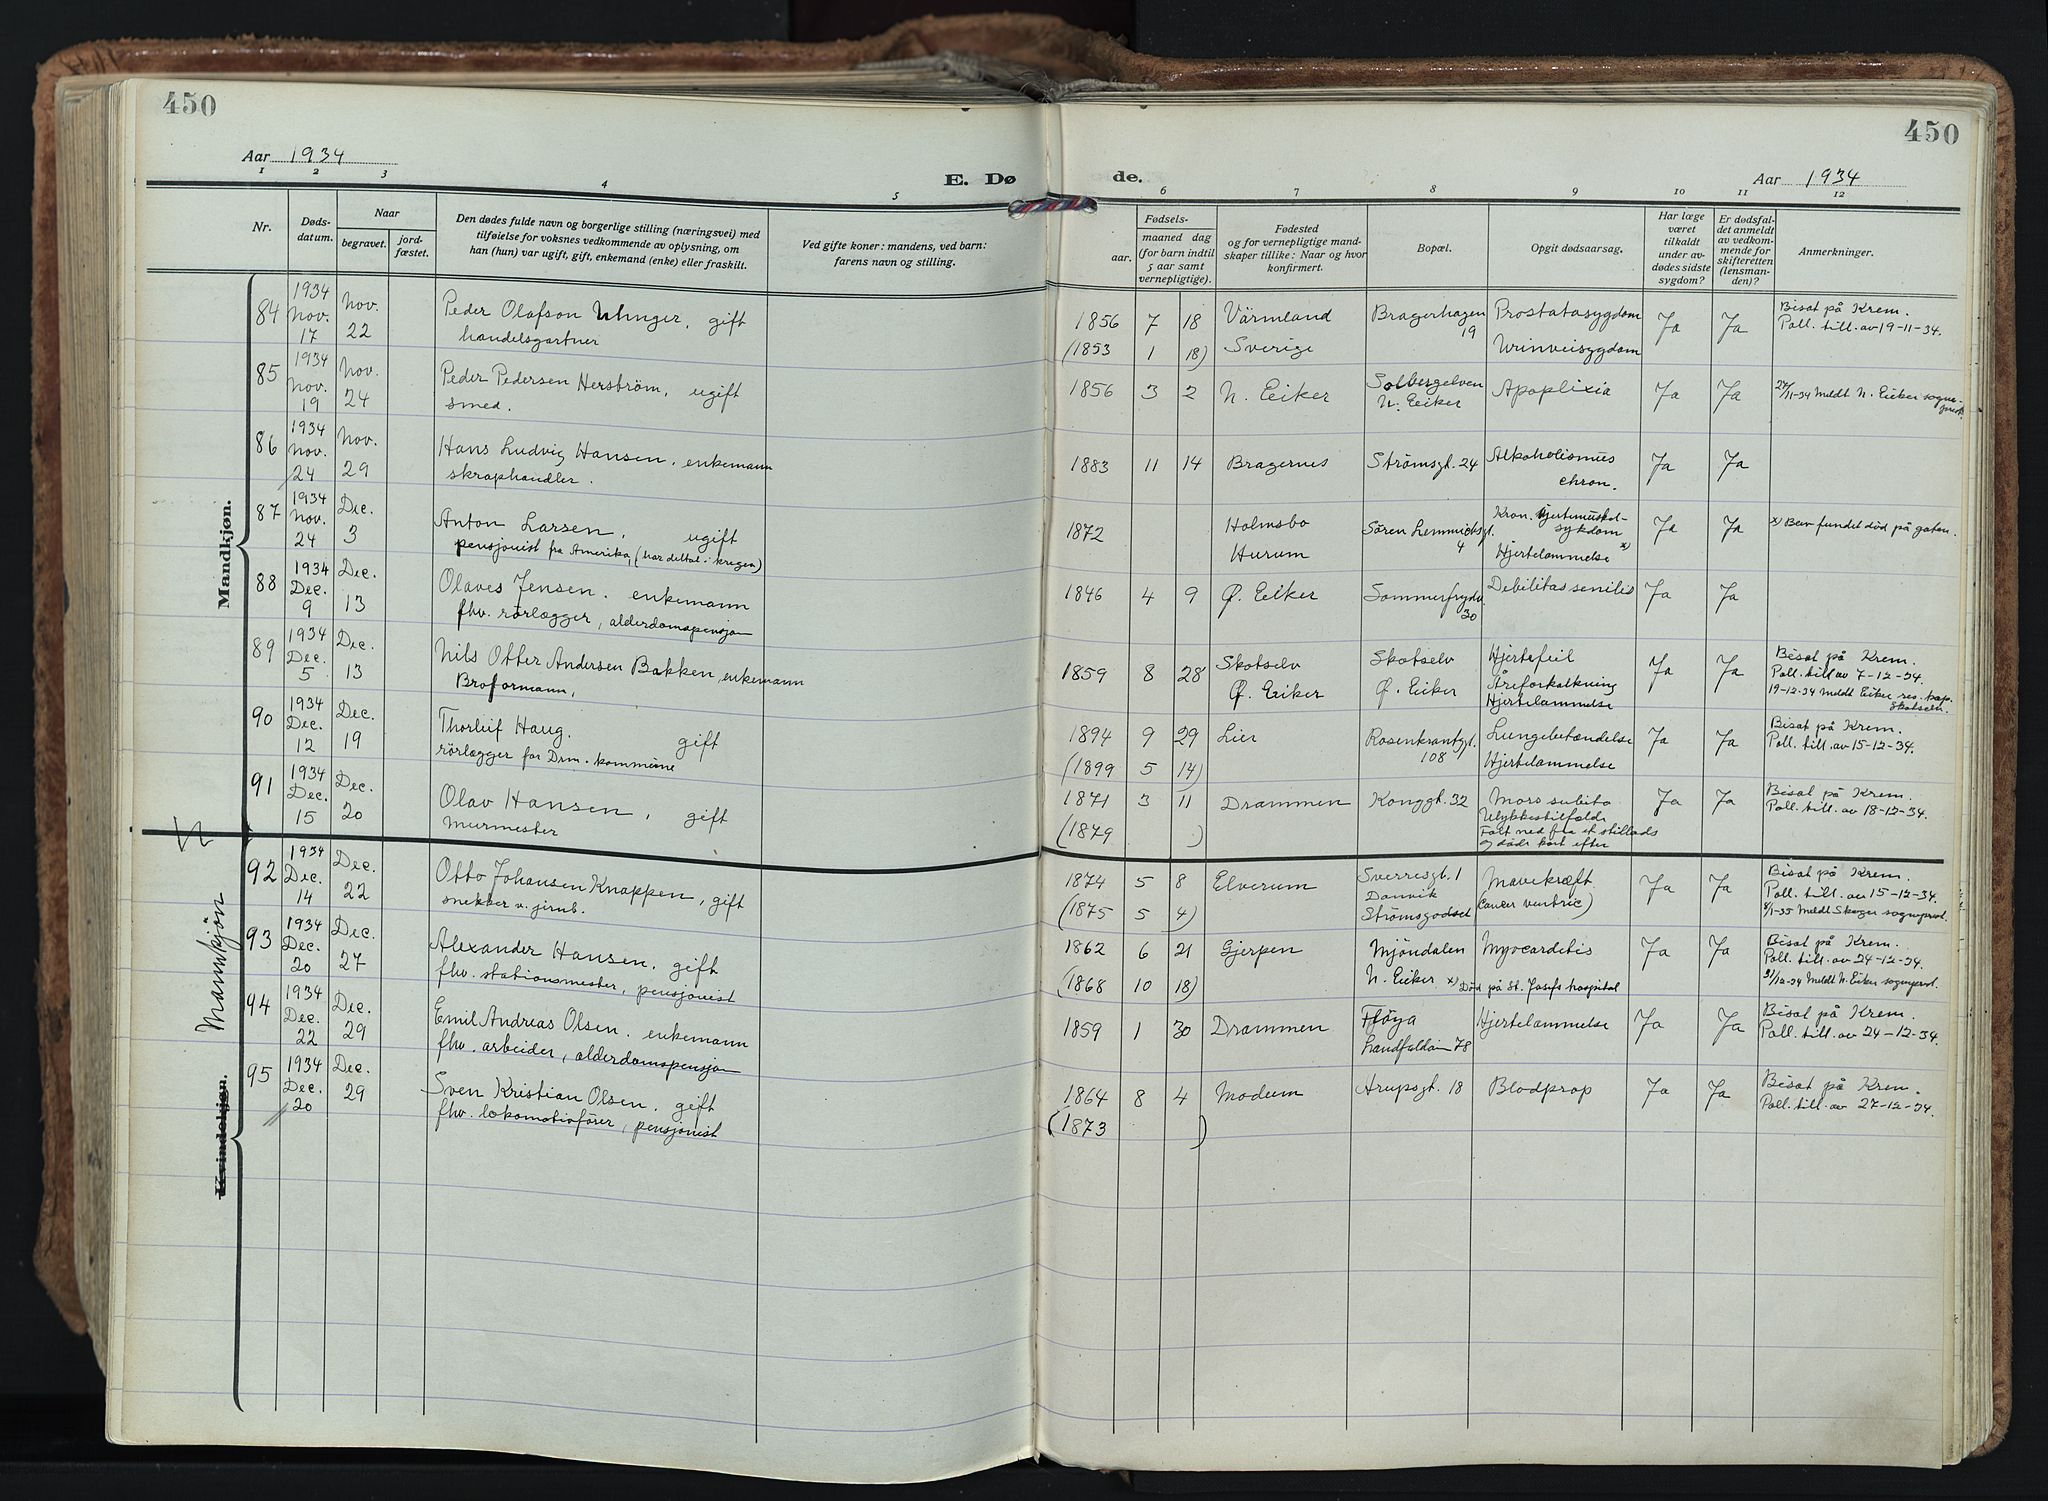 450
450
Aar 1934
E. Døde.
Aar 1934
1 2 3 4 5 6 7 8 9 10 11 12
Nr.
Døds-
datum.
Naar
begravet.
jord-
fæstet.
Den dødes fulde navn og borgerlige stilling (næringsvei) med
tilføielse for voksnes vedkommende av oplysning, om
han (hun) var ugift, gift, enkemand (enke) eller fraskilt.
Ved gifte koner: mandens, ved barn:
farens navn og stilling.
Fødsels-
aar. maaned dag
(for barn indtil
5 aar samt
vernepligtige).
Fødested
og for vernepligtige mand-
skaper tillike: Naar og hvor
konfirmert.
Bopæl.
Opgit dødsaarsag.
Har læge
været
tilkaldt
under av-
dødes sidste
sygdom?
Er dødsfal-
det anmeldt
av vedkom-
mende for
skifteretten
(lensman-
den)?
Anmerkninger.
Mandkjøn.
84 1934 Nov. 17 Nov. 22 Peder Olafson, gift
handelsgartner
1856 7 18 Värmland Bragerhagen 19 Prostatasygdom Ja Ja Bisat på Krem.
Poll. till. av 19-11-34.
(1853 1 18) Sverige Urinveisygdom
85 1934 Nov. 19 Nov. 24 Peder Pedersen Herström, ugift
smed.
1856 3 2 N. Eiker Solbergelven
N. Eiker Apoplixia Ja Ja 24/11-34 Meldt N. Eiker sogne-
prest.
86 1934 Nov. 24 Nov. 29 Hans Ludvig Hansen, enkemann
skraphandler.
1883 11 14 Bragernes Strömsgt. 24 Alkoholismus
chron. Ja Ja
87 1934 Nov. 24 Dec. 3 Anton Larsen, ugift
pensjonist fra Amerika, (har deltat i krigen)
1872 Holmsbo
Hurum Sören Lemmichsgt.
4 Kron. Hjertemuskel-
sykdom
Hjertelammelse x) Ja Ja x) Blev fundet död på gaten.
88 1934 Dec. 9 Dec. 13 Olaves Jensen. enkemann
fhv. rörlægger, alderdomspensjon
1846 4 9 Ø. Eiker Sommerfrydv.
30 Debilitas senilis Ja Ja
89 1934 Dec. 5 Dec. 13 Nils Otter Andersen Bakken, enkemann
Broformann,
1859 8 28 Skotselv
Ø. Eiker Skotselv
Ø. Eiker Hjertefeil
Åreforkalkning
Hjertelammelse Ja Ja Bisat på Krem.
Poll. till av 7-12-34.
19-12-34 Meldt Eiker res. kap.
Skotselv.
90 1934 Dec. 12 Dec. 19 Thorleif Haug. gift
rörlægger for Drm. kommune
1894 9 29 Lier Rosenkrantzgt.
108 Lungebetændelse
Hjertelammelse Ja Ja Bisat på Krem.
Poll. till. av 15-12-34.
(1899 5 14)
91 1934 Dec. 15 Dec. 20 Olav Hansen, gift
Murmester
1871 3 11 Drammen Konggt. 32 Mors subito
Ulykkestilfælde
Falt ned fra et stillads
og döde kort efter Ja Ja Bisat på Krem.
Poll. till. av 18-12-34.
(1879 )
Kvindekjøn. Mannkjön
92 1934 Dec. 14 Dec. 22 Otto Johansen Knappen, gift
snekker v. jernb.
1874 5 8 Elverum Sverresgt. 1
Danvik
Strömsgodset Mavekræft
(Cancer ventric) Ja Ja Bisat på Krem.
Poll. till. av 15-12-34.
8/1-35 Meldt Skoger sogneprest.
(1875 5 4)
93 1934 Dec. 20 Dec. 27 Alexander Hansen. gift
fhv. stationsmester, pensjonist
1862 6 21 Gjerpen Mjöndalen
N. Eiker Myocarditis
x) Död på St. Josefs hospital Ja Ja Bisat på Krem.
Poll. till. av 24-12-34.
31/12-34 Meldt N. Eiker sogneprest.
(1868 10 18)
94 1934 Dec. 22 Dec. 29 Emil Andreas Olsen. enkemann
fhv. arbeider, alderdomspensjon
1859 1 30 Drammen Flöya
Landfaldöia 78 Hjertelammelse Ja Ja Bisat på Krem.
Poll. till. av 24-12-34.
95 1934 Dec. 20 Dec. 29 Sven Kristian Olsen. gift
fhv. lokomotivförer, pensjonist
1864 8 4 Modum Arupsgt. 18 Blodprop Ja Ja Bisat på Krem.
Poll. till. av 27-12-34.
(1873 )